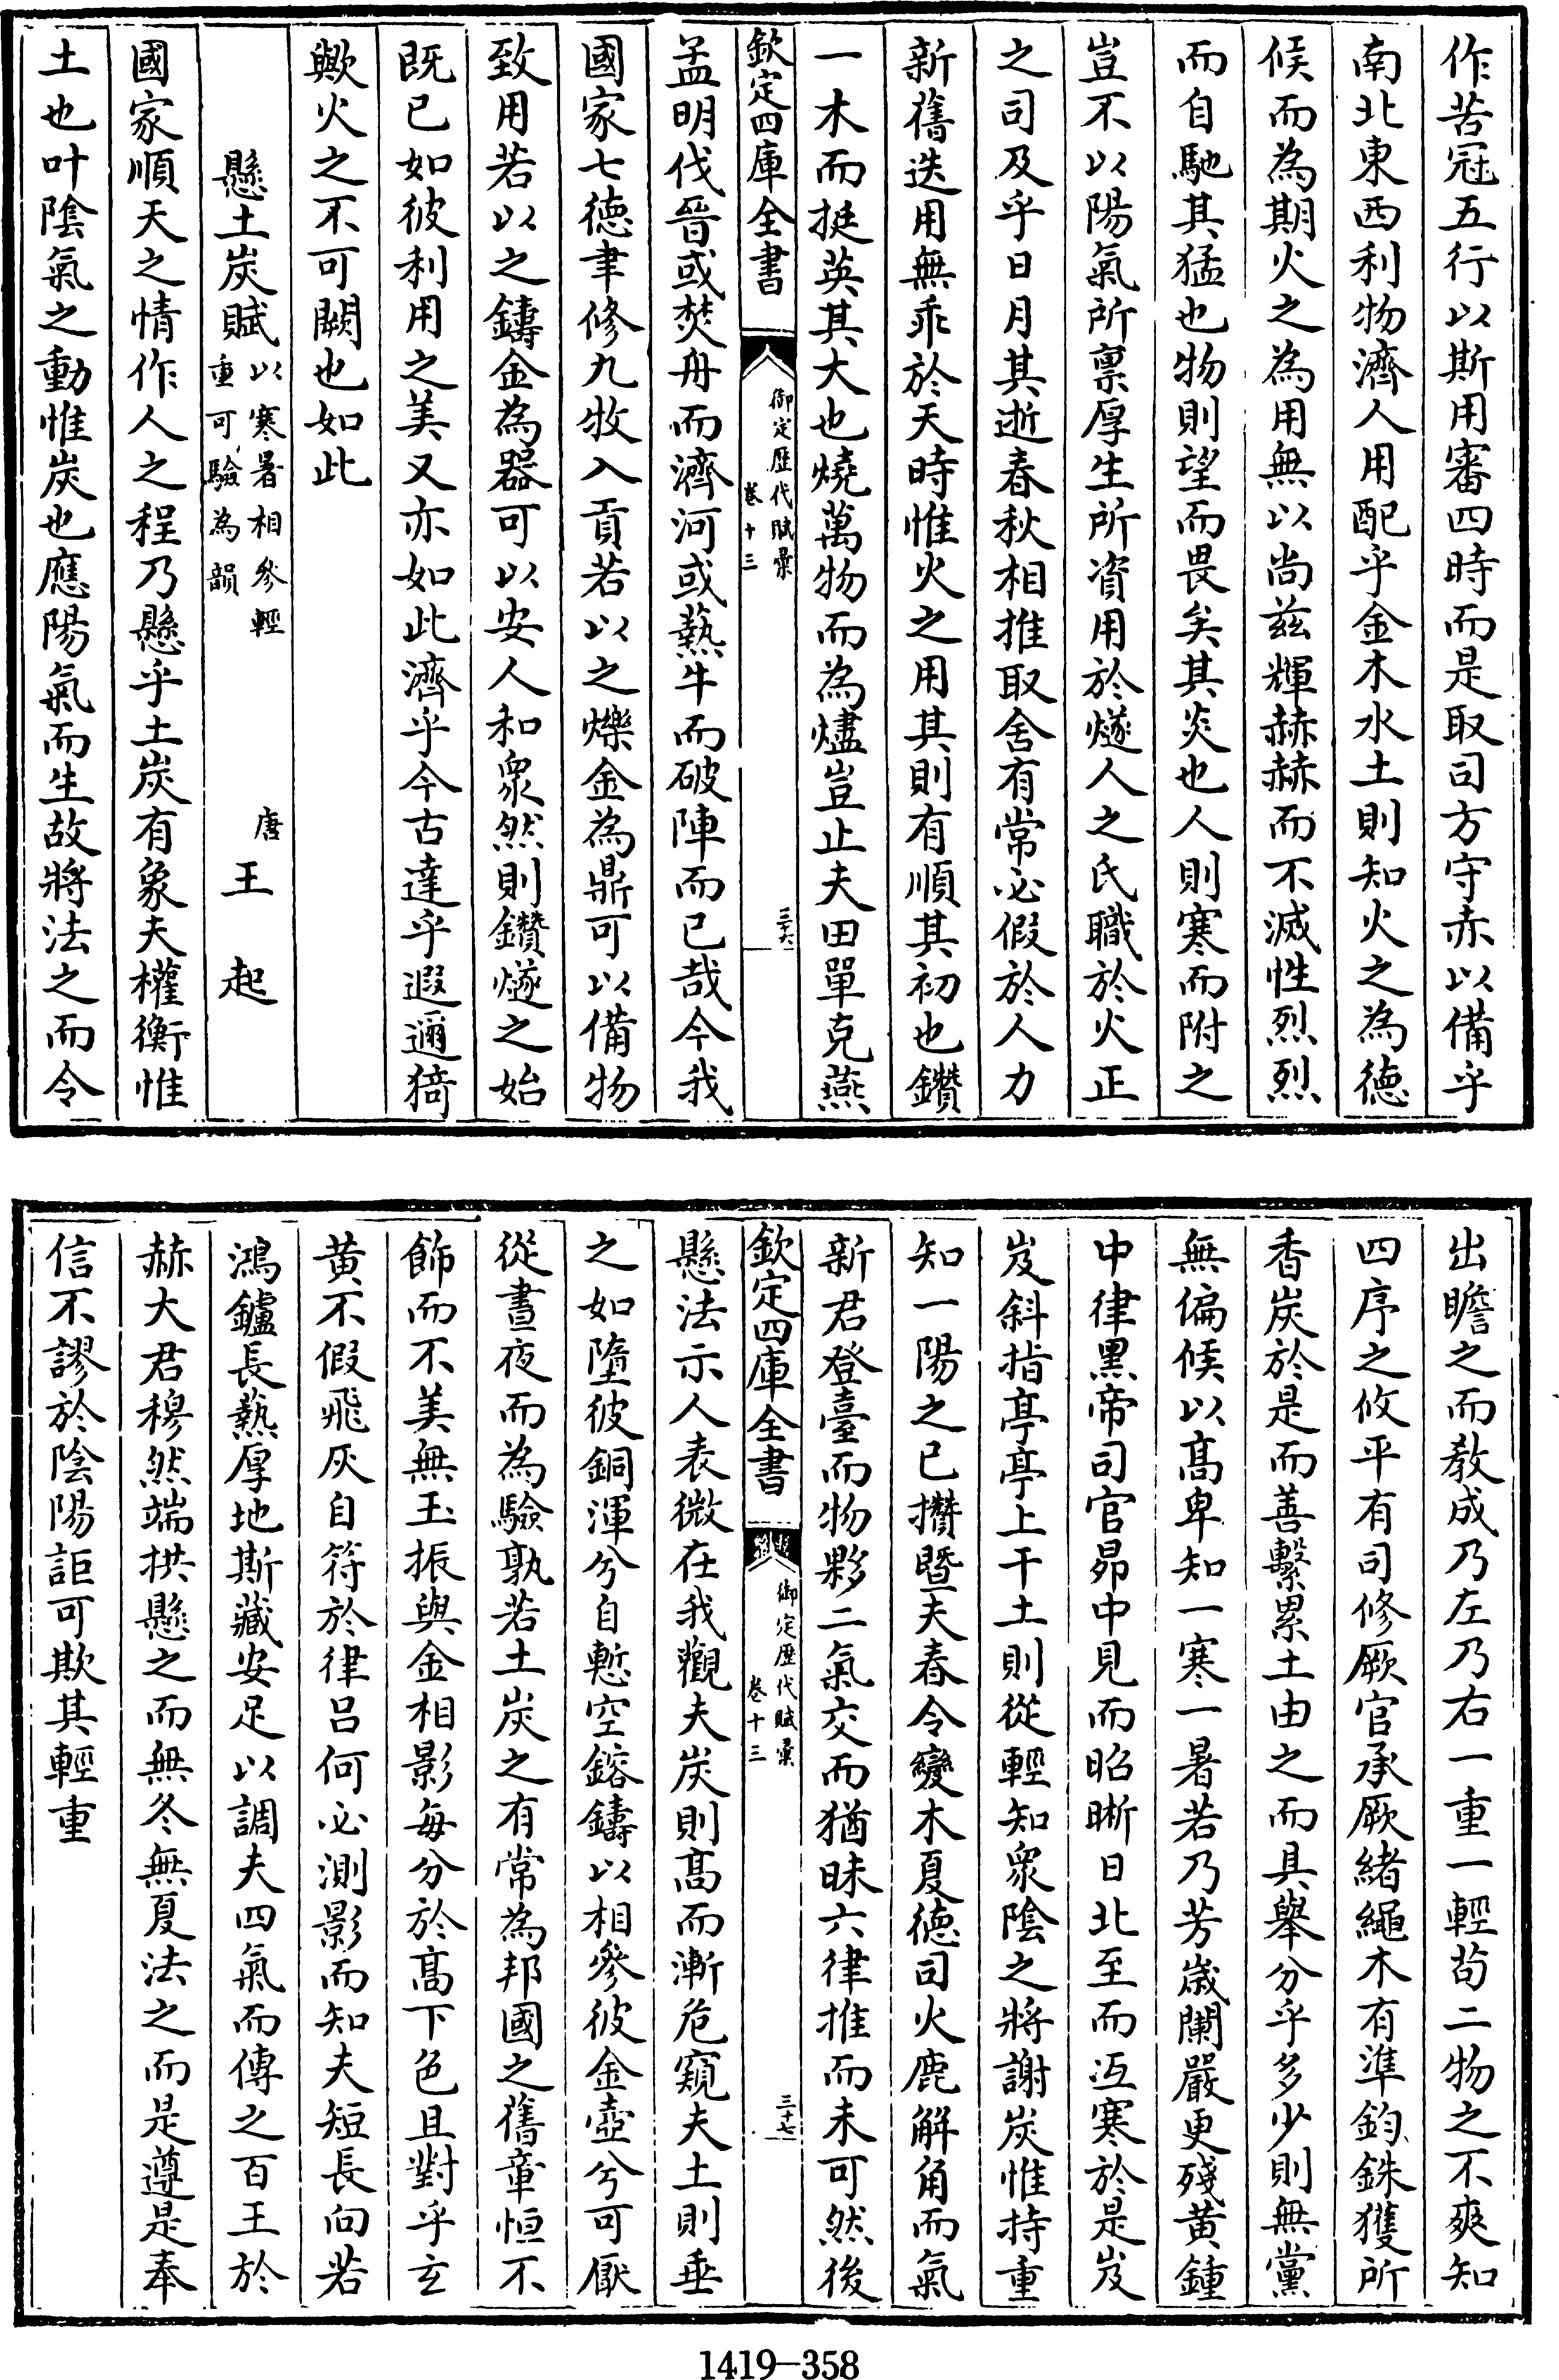 作苦冠五行以斯用審四時而是取司方守赤以備乎
南北東西利物濟人用配乎金木水土則知火之為德
候而為期火之為用無以尚兹輝赫赫而不滅性烈烈
而自馳其猛也物則望而畏矣其炎也人則寒而附之
豈不以陽氣所禀厚生所資用於燧人之氏職於火正
之司及乎日月其逝春秋相推取舍有常必假於人力
新舊迭用無乖於天時惟火之用其則有順其初也鑽
一木而挺英其大也燒萬物而為燼豈止夫田單克燕
欽定四庫全書
御定歷代賦彙
卷十三
三十六
孟明伐晉或焚舟而濟河或熱牛而破陣而已哉今我
國家七德聿修九牧入貢若以之爍金為鼎可以備物
致用若以之鑄金為器可以安人和衆然則鑽燧之始
既已如彼利用之美又亦如此濟乎今古達乎遐邇猗
歟火之不可闕也如此
懸土炭賦
以寒暑相參輕
重可驗為韻
唐
王起
國家順天之情作人之程乃懸乎土炭有象夫權衡惟
土也叶陰氣之動惟炭也應陽氣而生故將法之而令
出瞻之而教成乃左乃右一重一輕苟二物之不爽知
四序之攸平有司修厥官承厥緒繩木有準鈞銖獲所
香炭於是而善繫累土由之而具舉分乎多少則無黨
無偏候以髙卑知一寒一暑若乃芳歳闌嚴更殘黄鍾
中律黒帝司官昴中見而昭晣日北至而冱寒於是岌
岌斜指亭亭上干土則從輕知衆陰之將謝炭惟持重
知一陽之已攢暨夫春令變木夏德司火鹿解角而氣
新君登臺而物夥二氣交而猶昧六律推而未可然後
欽定四庫全書
御定歷代賦彙
卷十三
三十七
懸法示人表微在我觀夫炭則髙而漸危窺夫土則垂
之如墮彼銅渾兮自慙空鎔鑄以相參彼金壺兮可厭
從晝夜而為驗孰若土炭之有常為邦國之舊章恒不
飾而不美無玉振與金相影每分於髙下色且對乎玄
黄不假飛灰自符於律吕何必測影而知夫短長向若
鴻鑪長熱厚地斯藏安足以調夫四氣而傳之百王於
赫大君穆然端拱懸之而無冬無夏法之而是遵是奉
信不謬於陰陽詎可欺其輕重
1419-358